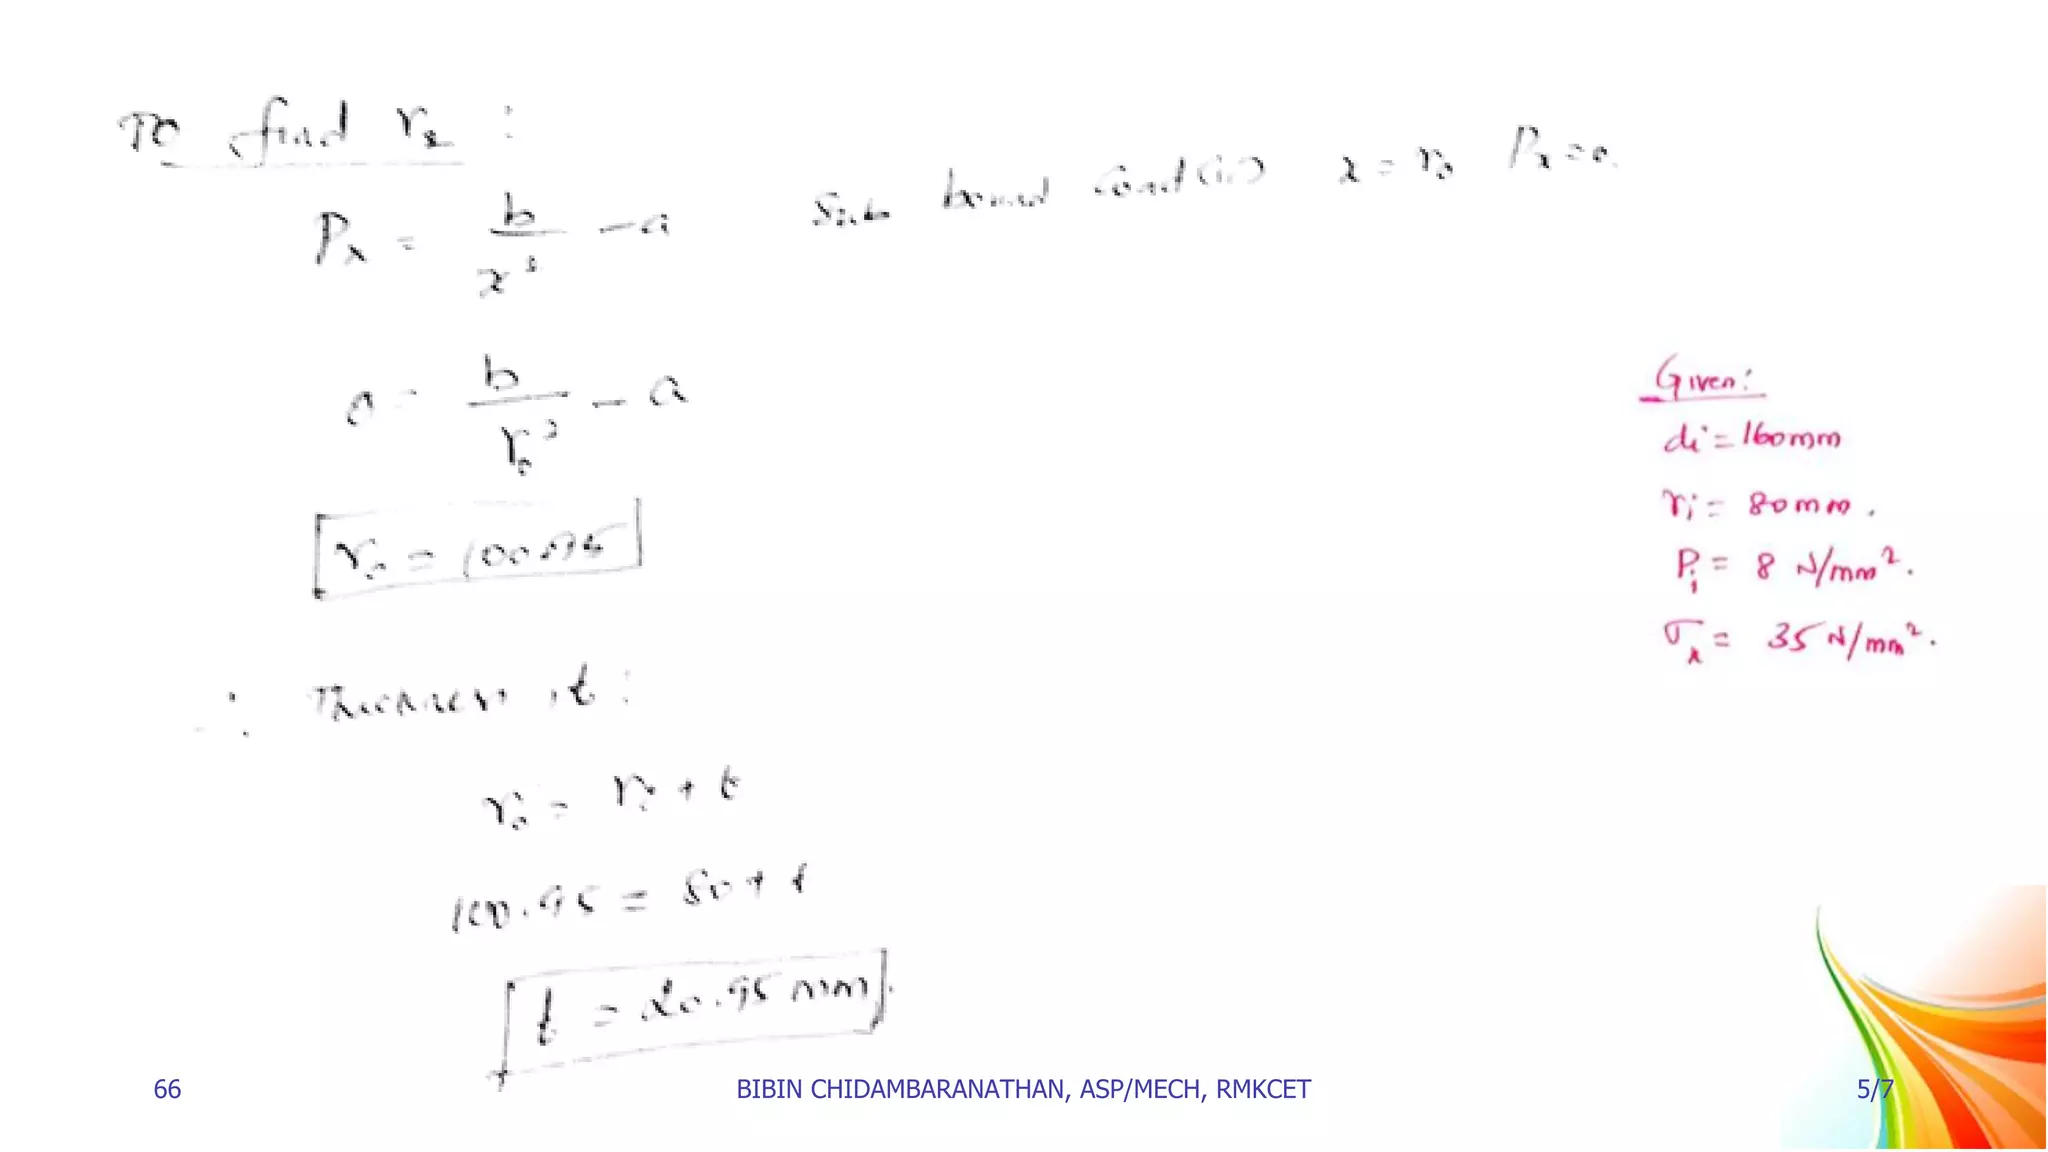 To find r₂ :
Pₓ = b/x² - a    Sub bound cond (ii) x = r₀ Pₓ = 0.
0 = b/r₀² - a
r₀ = 100.95
∴ Thickness, t :
r₀ = rᵢ + t
100.95 = 80 + t
t = 20.95 mm.
Given:
di = 160mm
rᵢ = 80mm.
Pᵢ = 8 N/mm².
σₓ = 35 N/mm².
66 BIBIN CHIDAMBARANATHAN, ASP/MECH, RMKCET 5/7